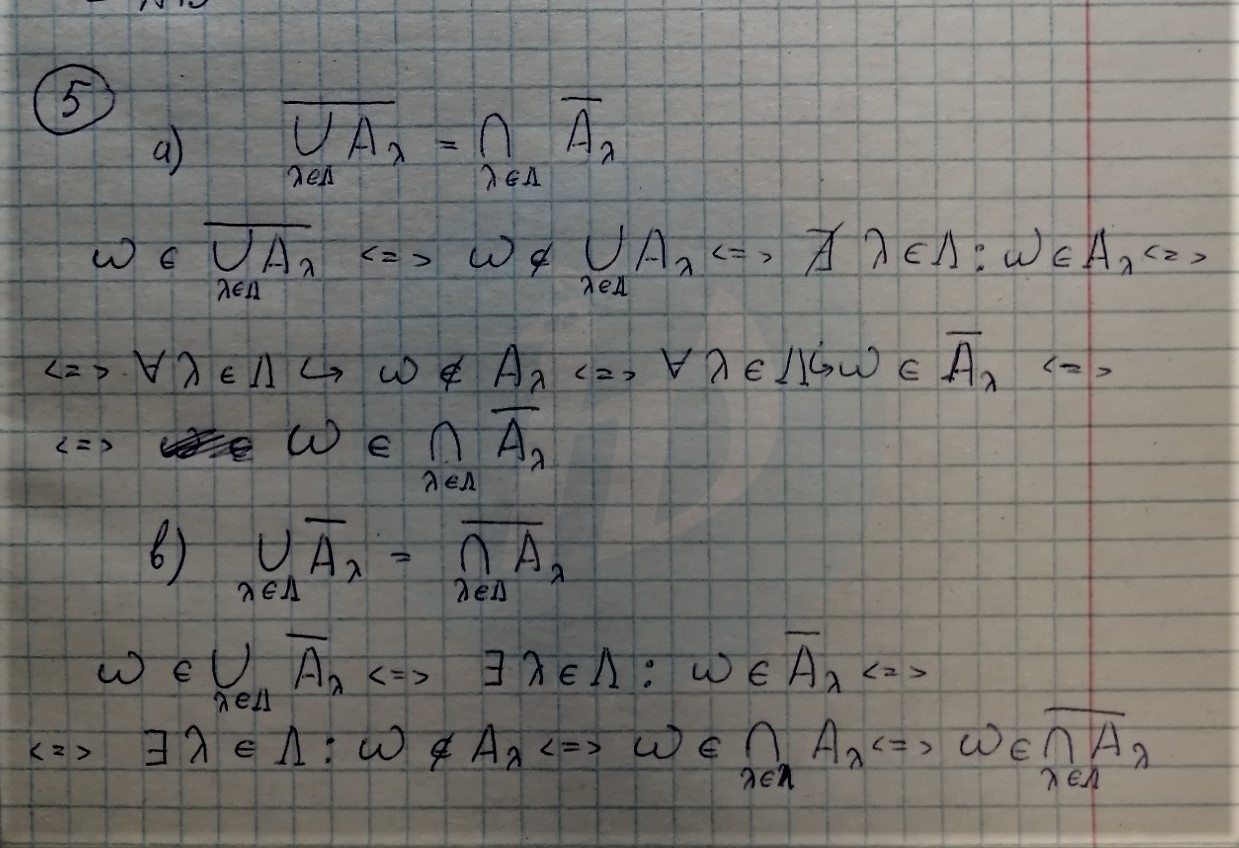 5
а) $\overline{\bigcup_{λ∈Λ} A_λ} = \bigcap_{λ∈Λ} \overline{A}_λ$
$ω ∈ \overline{\bigcup_{λ∈Λ} A_λ} <=> ω ∉ \bigcup_{λ∈Λ} A_λ <=> ∄ λ∈Λ : ω∈A_λ <=>$
$<=> ∀ λ∈Λ ↪ ω ∉ A_λ <=> ∀ λ∈Λ ↪ ω ∈ \overline{A}_λ <=>$
$<=> ω ∈ \bigcap_{λ∈Λ} \overline{A}_λ$
в) $\bigcup_{λ∈Λ} \overline{A}_λ = \overline{\bigcap_{λ∈Λ} A_λ}$
$ω ∈ \bigcup_{λ∈Λ} \overline{A}_λ <=> ∃ λ∈Λ : ω ∈ \overline{A}_λ <=>$
$<=> ∃ λ∈Λ : ω ∉ A_λ <=> ω ∈ \bigcap_{λ∈Λ} A_λ <=> ω ∈ \overline{\bigcap_{λ∈Λ} A_λ}$